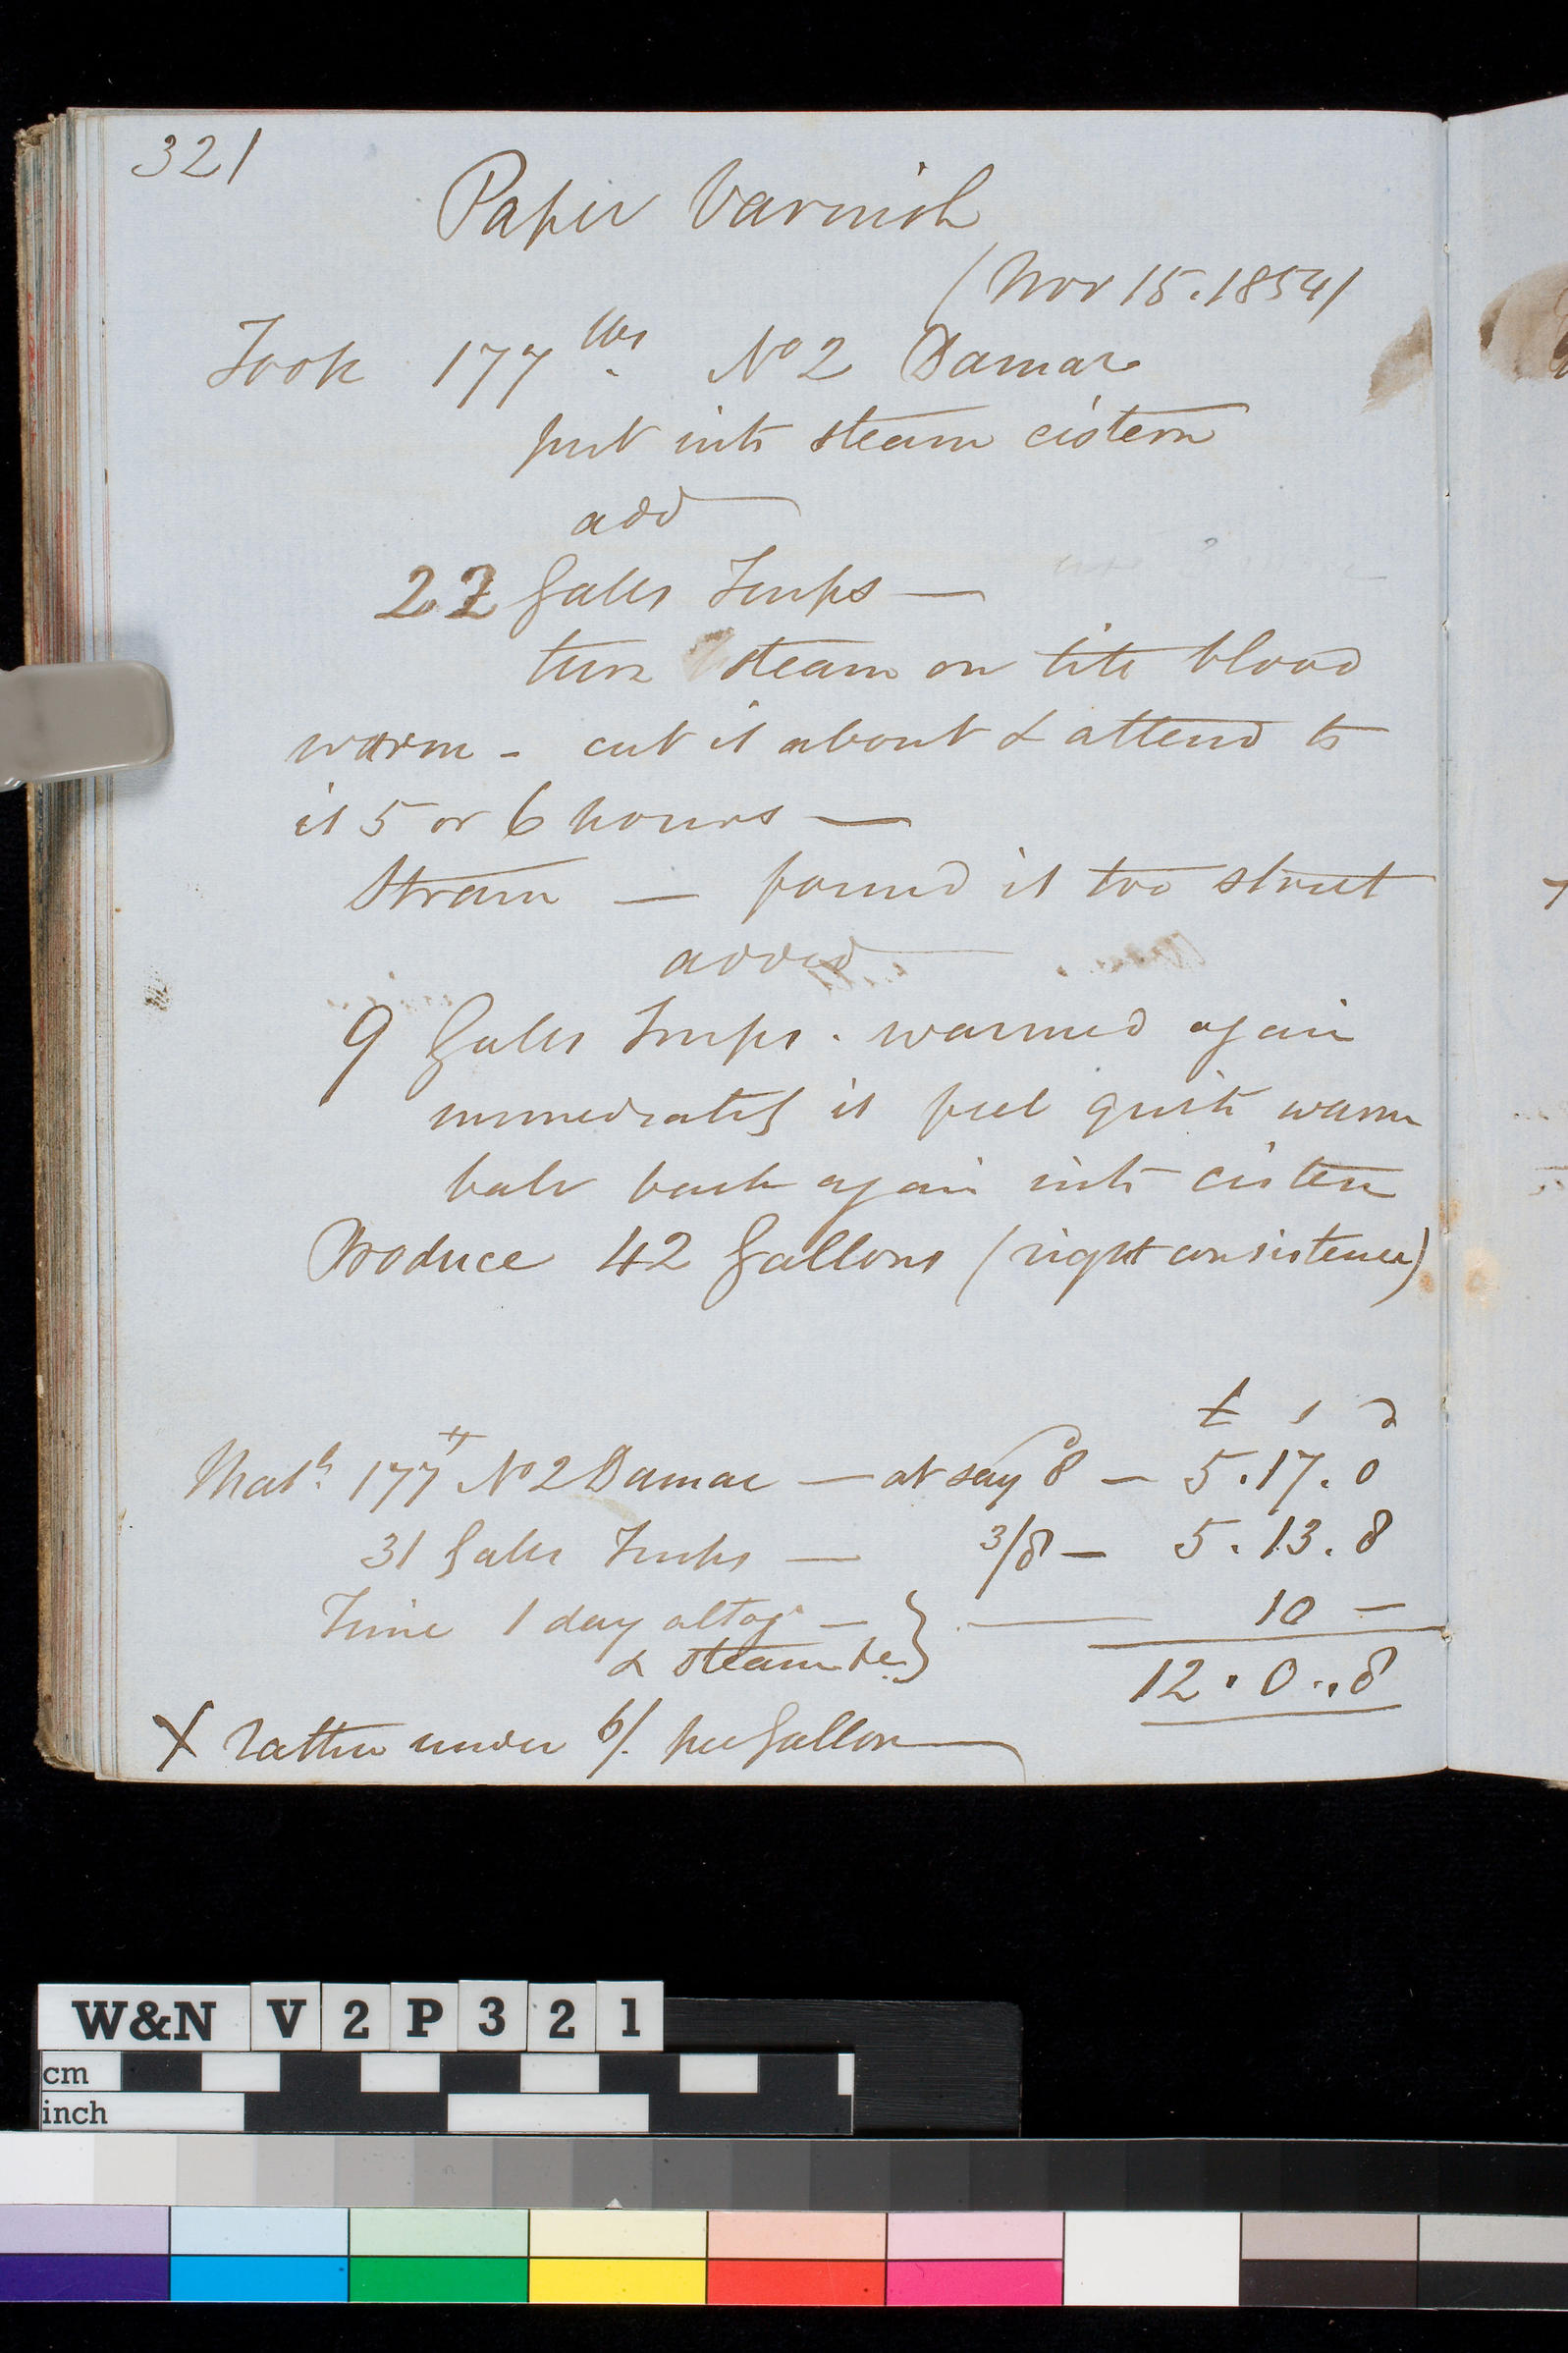 321
Paper Varnish
(Nov 15. 1854)
Took 177 lbs No 2 Damar
put into steam cistern
add
22 Galls Turps —
turn steam on till blood
warm - cut it about & attend to
it 5 or 6 hours —
Strain — found it too stout
added
9 Galls Turps . warmed again
immediately it feel quite warm
bale back again into cistern
Produce 42 Gallons (right consistence)
£ s d
Matls 177 lb No 2 Damar — at say 8d — 5.17.0
31 Galls Turps — 3/8 — 5.13.8
Time 1 day altog — } — 10 —
& steam &c }
12.0..8
X rather under 6/. per Gallon
W&N V 2 P 3 2 1
cm
inch